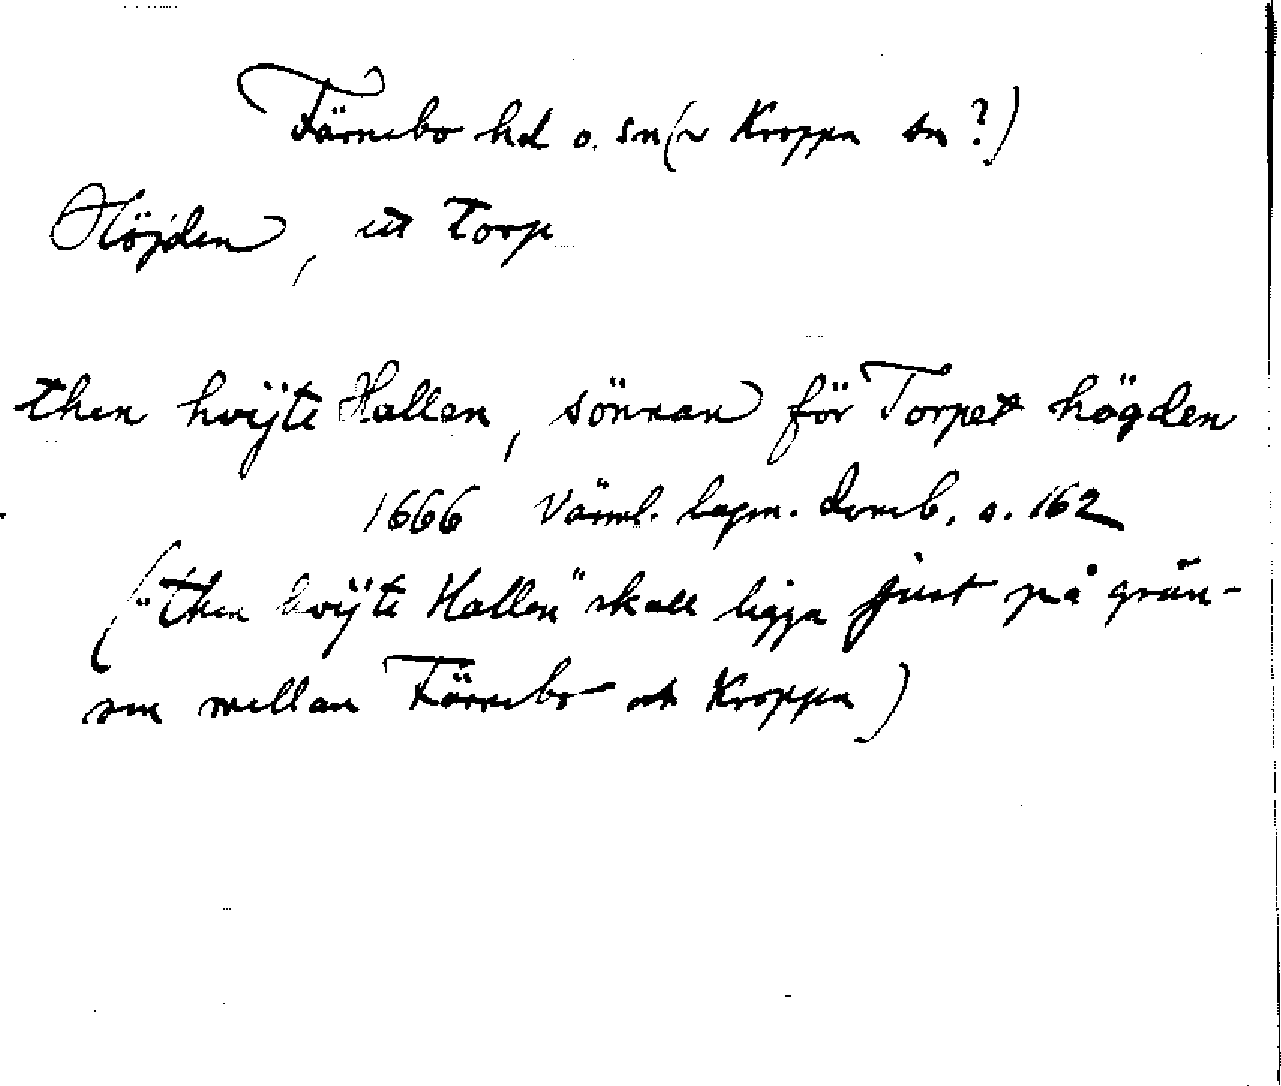 Färnebo hd o. sn (v Kroppa sn?)
Höjden, ett torp
then hvijte Hallen, sönnan för Torpet högden
1666 Värml. lagm. domb. s. 162
("then hvijte Hallen" skall ligga just på grän-
sen mellan Färnebo och Kroppa)